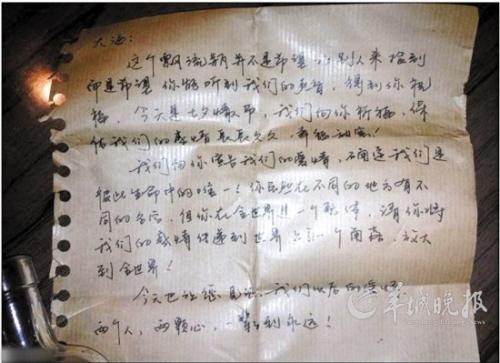 大海：
这个漂流瓶并不是希望，别人来捡到
而是希望你能听到我们的声音，得到你祝
福，今天是七夕情节，我们向你祈福，保
佑我们的感情长长久久，幸福
我们向你宣告我们的爱情，确定我们是
彼此生命中的唯一！你虽然在不同的地方有不
同的名字，但你在全世界是一个整体，请你将
我们的感情传递到世界每一个角落，放大
到全世界！
今天也让您见证，我们以后的爱情
两个人，两颗心，一辈到永远！
羊城晚报